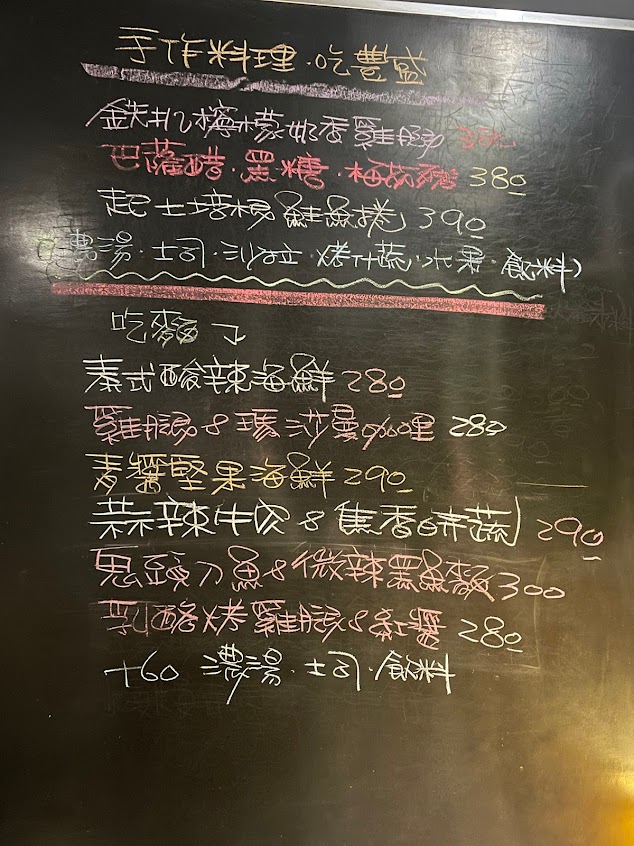 手作料理·吃豐盛
鉄扒檸檬奶香雞腿
巴薩醋·黑糖·梅花豬 380
起士培根鮭魚捲 390
(濃湯·土司·沙拉·烤什蔬·水果·飲料)
吃麵↴
泰式酸辣海鮮 280
雞腿&瑪莎曼咖哩 280
青醬堅果海鮮 290
蒜辣牛肉&焦香時蔬 290
鬼頭刀魚&微辣墨魚麵 300
乳酪烤雞腿&紅醬 280
+60 濃湯·土司·飲料